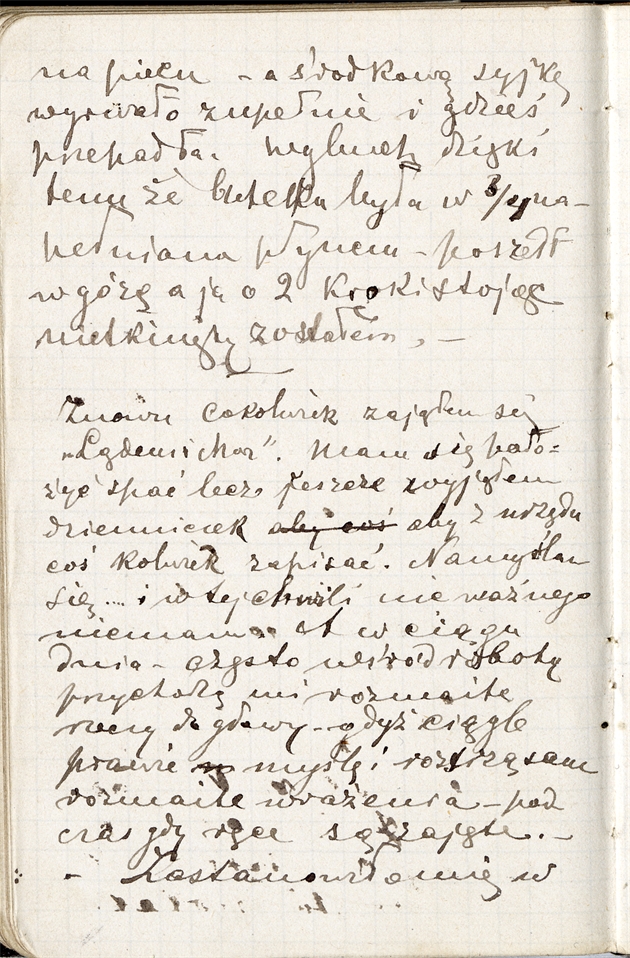 na piecu - a środkową syjkę
wyrwało zupełnie i gdzieś
przepadła. Wybuch dzięki
temu że butelka była w 3/4 na-
pełniana płynem - poszedł
w górę a ja o 2 kroki stojąc
nietknięty zostałem, -
Znowu cokolwiek zająłem się
Mam się poło=
żyć spać lecz jeszcze wyjąłem
dzienniczek aby coś aby z urzędu
coś kolwiek zapisać. Namyślam
się .... i w tej chwili nic ważnego
niemam. A w ciągu
dnia - często wśród roboty
przychodzą mi rozmaite
rzeczy do głowy - gdyż ciągle
prawie myślę i roztrząsam
rozmaite wrażenia - pod
czas gdy ręce są zajęte. -
- Zastanowiło mię w